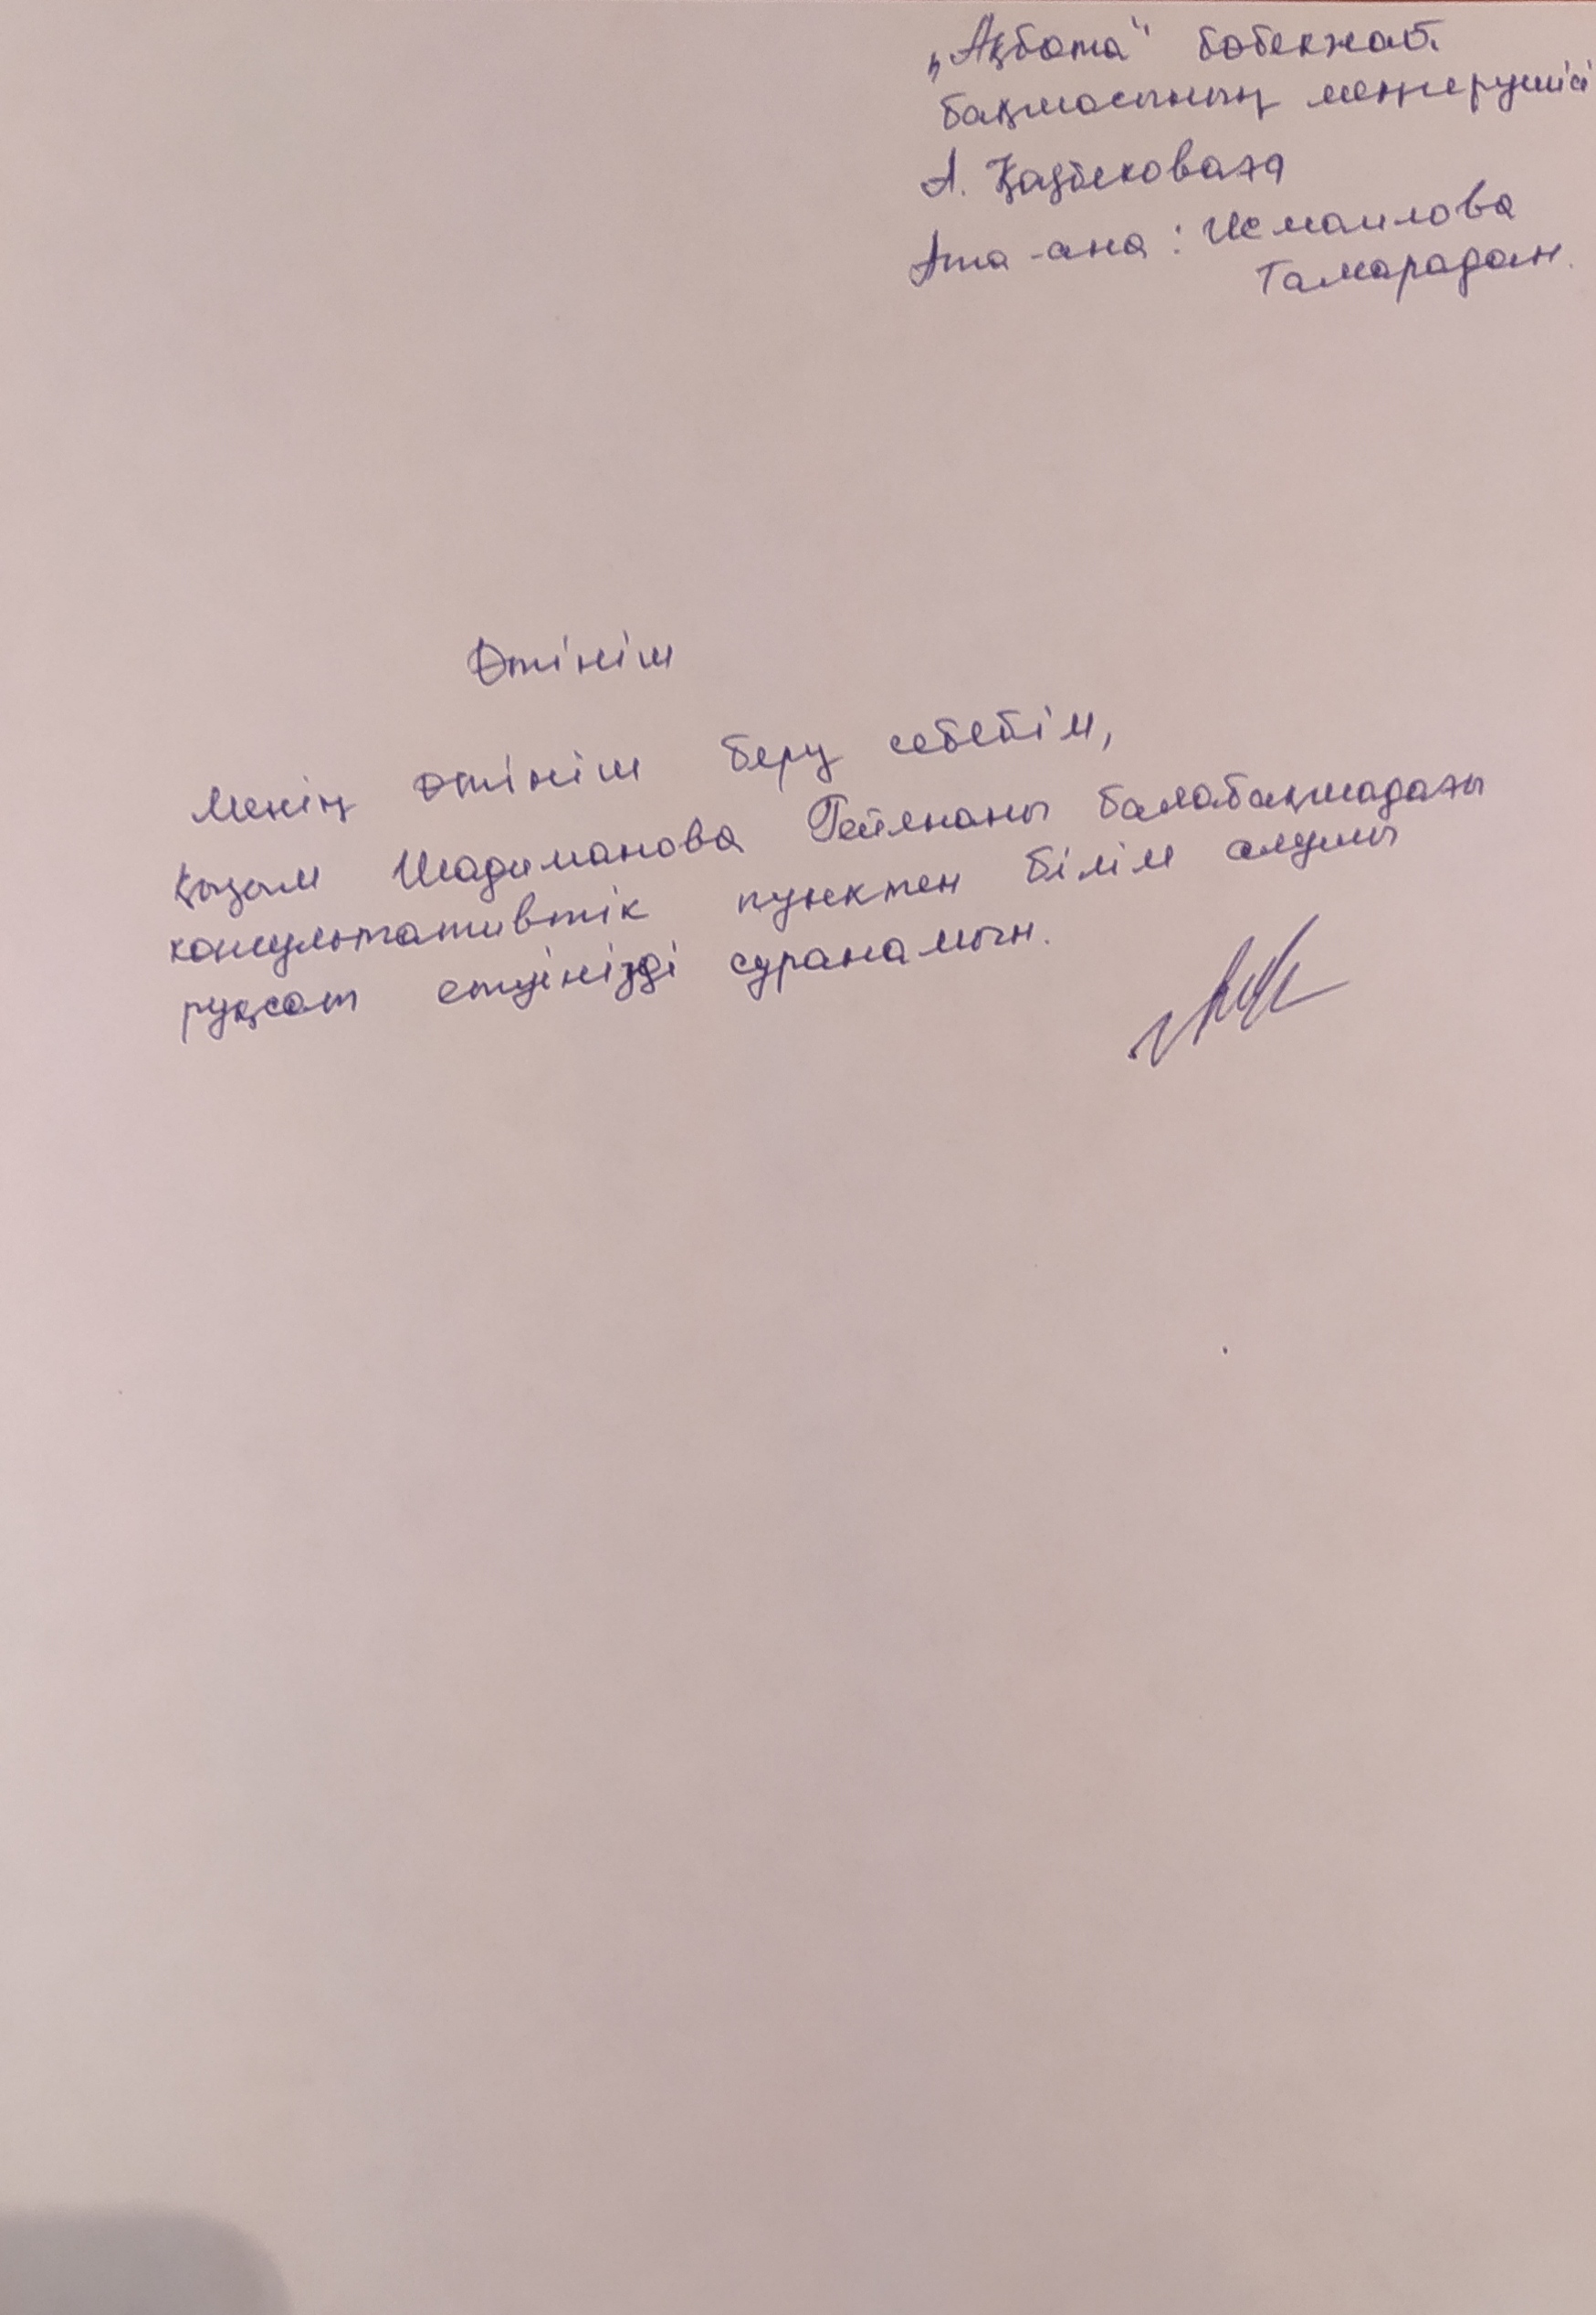 „Ақбота" бөбекжай
бақшасының меңгерушісі
А. Қазбековаға
Ата-ана: Исмаилова
Тамарадан.
Өтініш
Менің өтініш беру себебім,
қызым Шадиманова балабақшадағы
консультативтік пунктен білім алуыма
рұқсат етуіңізді сұранамын.